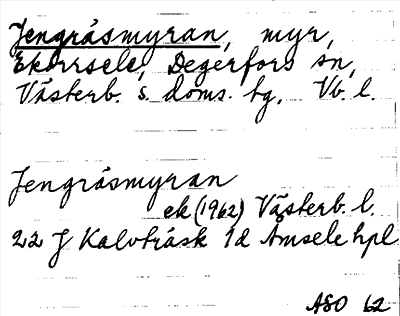 Jengråsmyran, myr,
Ekorrsele, Degerfors sn,
Västerb. s. doms. tg. Vb. l.
Jengråsmyran
ek (1962) Västerb. l.
22 J Kalvträsk 1d Åmsele hpl
ASO 62